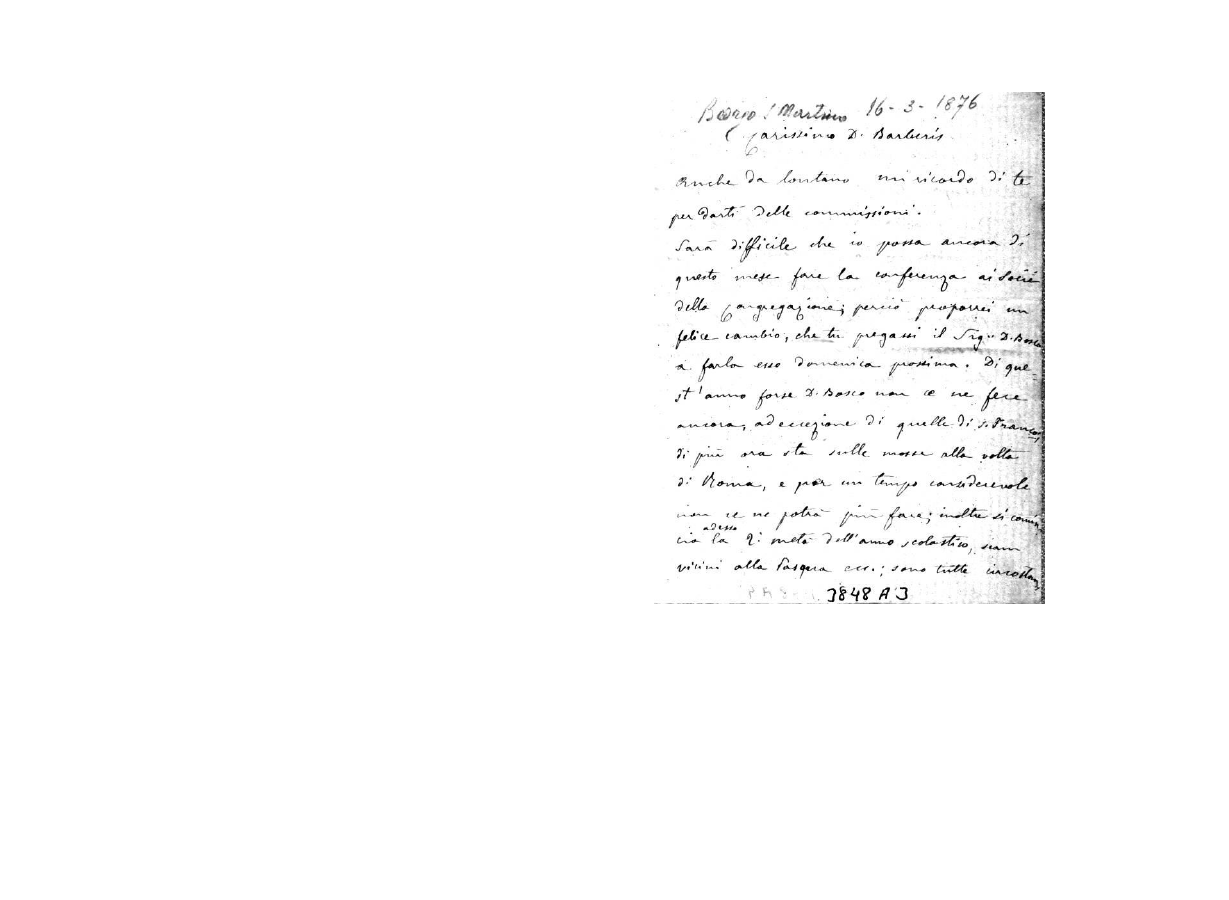 Borgo S Martino 16-3-1876
Carissimo D. Barberis
Anche da lontano mi ricordo di te
per darti delle commissioni.
Sarà difficile che io possa ancora di
questo mese fare la conferenza ai Socii
della Congregazione; perciò proporrei un
felice cambio, che tu pregassi il Sig.r D. Bosco
a farla esso domenica prossima. Di que-
st'anno forse D. Bosco non ce ne fece
ancora, ad eccezione di quelle di S. Franc.o,
di più ora sta sulle mosse alla volta
di Roma, e per un tempo considerevole
non ce ne potrà più fare; inoltre si comin
adesso
cia la 2ª metà dell'anno scolastico, siam
vicini alla Pasqua ecc.; sono tutte circostan
3848 A 3